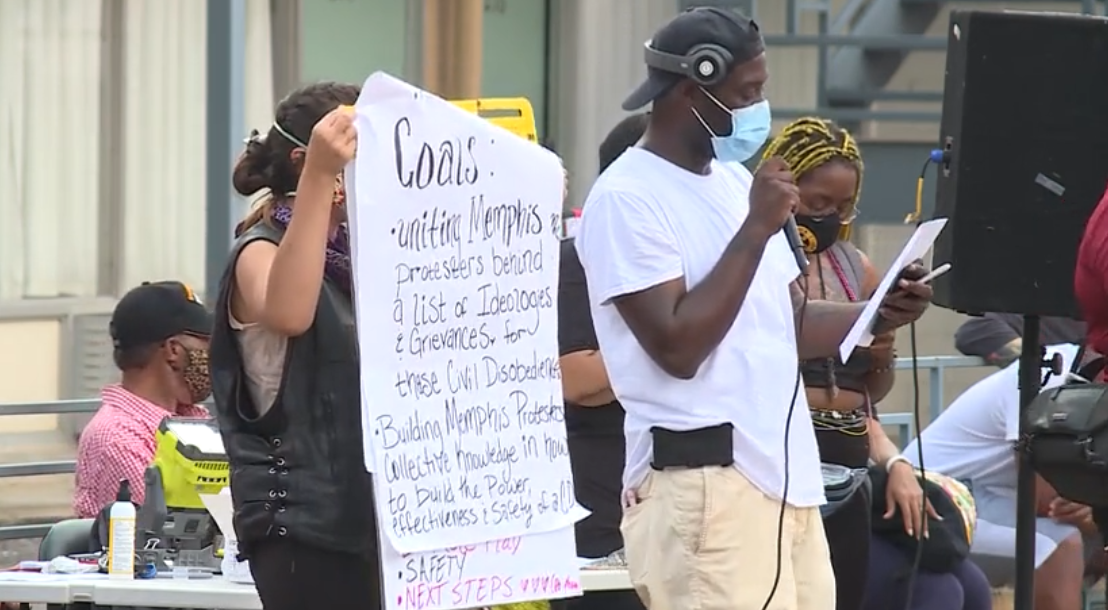 Goals:
• uniting Memphis
protesters behind
a list of Ideologies
& Grievances. for
these Civil Disobedience
• Building Memphis Protesters
Collective Knowledge in how
to build the Power,
effectiveness & Safety of a
Play
• SAFETY
• NEXT STEPS